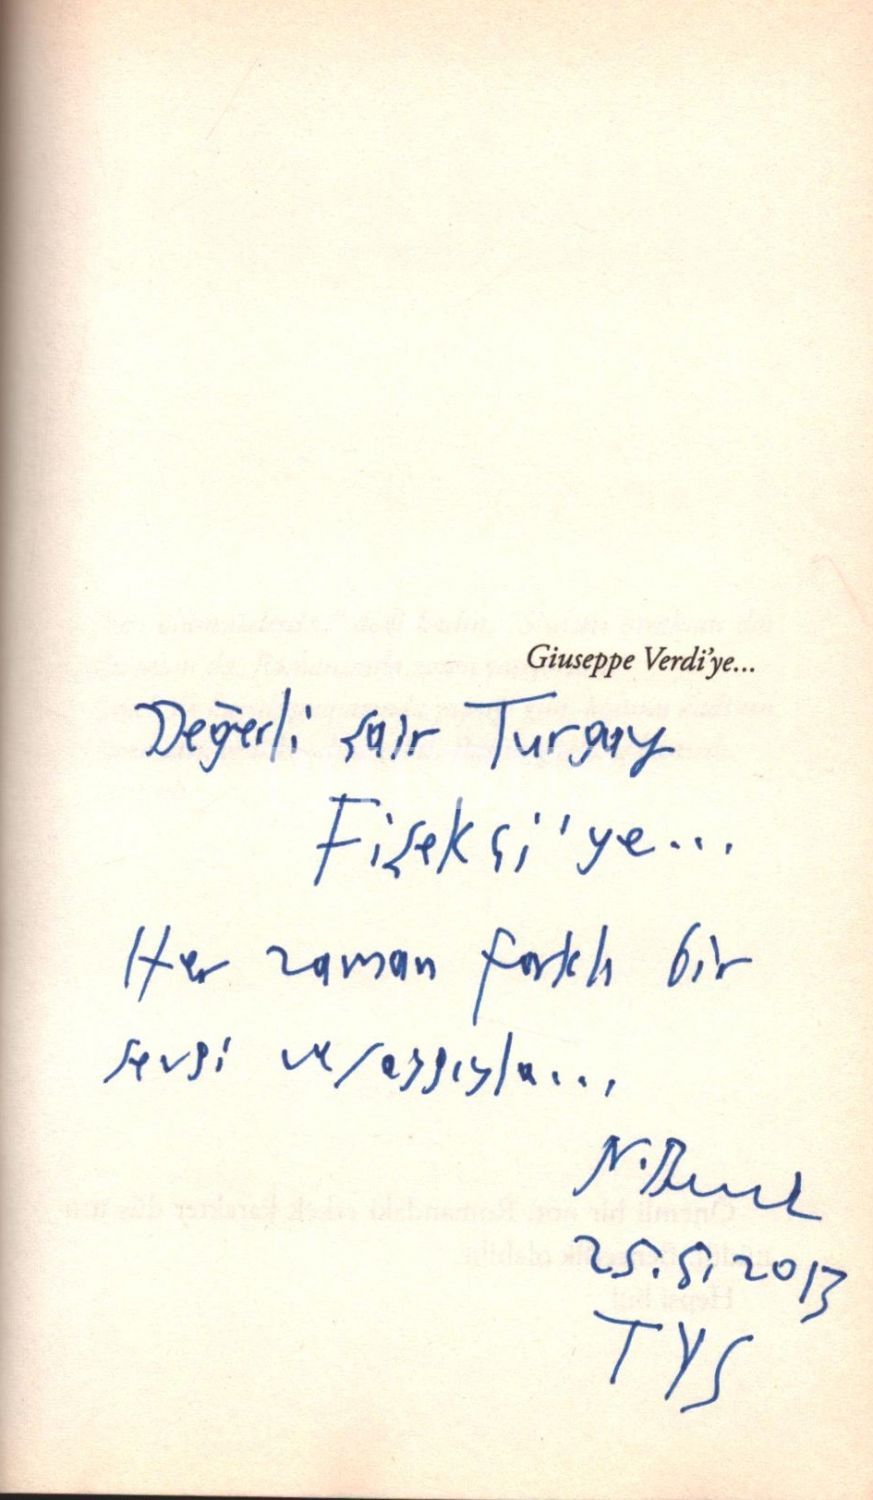 Giuseppe Verdi'ye...
Değerli şair Turgay
Fişekçi'ye...
Her zaman farklı bir
sevgi ve saygıyla...
N.
25.5.2013
TYS